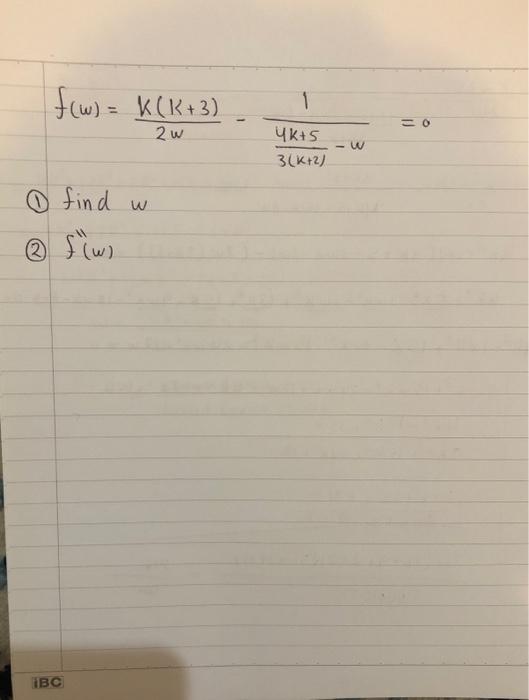 f(w) = K(K+3)/2w - 1/((4K+5)/(3(K+2)) - w) = 0
① find w
② f"(w)
iBC